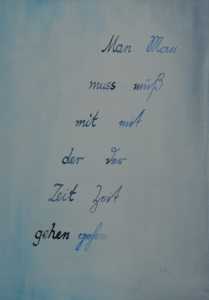 Man Man
muss muß
mit mit
der der
Zeit Zeit
gehen gehen